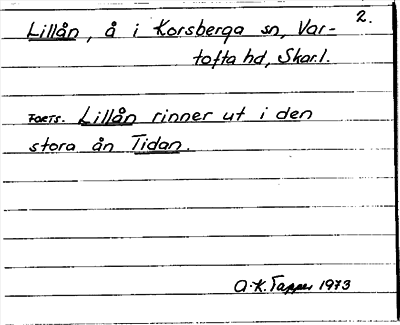 2.
Lillån, å i Korsberga sn, Var-
tofta hd, Skar.l.
FORTS. Lillån rinner ut i den
stora ån Tidan.
A.K. Tapper 1973